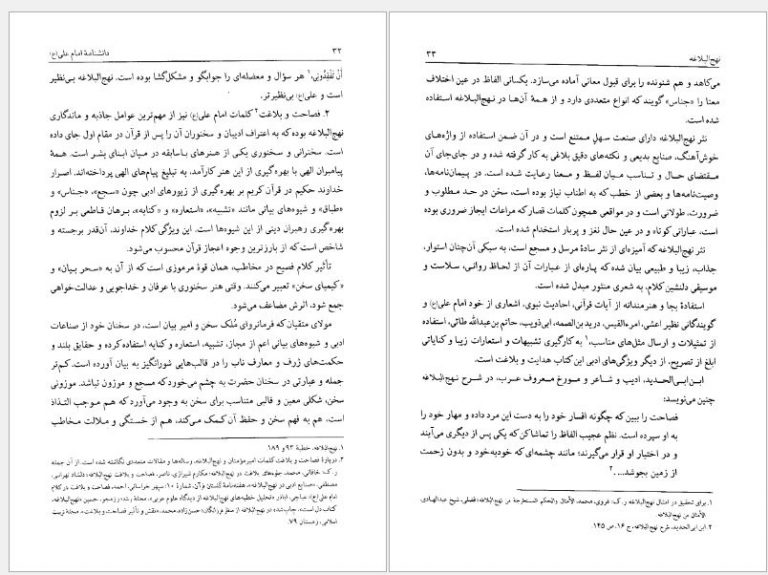 ۳۲
دانشنامهٔ امام علی(ع)
أنْ تَفْقِدُونِی،۱ هر سؤال و معضله‌ای را جوابگو و مشکل‌گشا بوده است. نهج‌البلاغه بی‌نظیر
است و علی(ع) بی‌نظیرتر.
۲. فصاحت و بلاغت۲ کلمات امام علی(ع) نیز از مهم‌ترین عوامل جاذبه و ماندگاری
نهج‌البلاغه بوده که به اعتراف ادیبان و سخنوران آن را پس از قرآن در مقام اول جای داده
است. سخنرانی و سخنوری یکی از هنرهای باسابقه در میان ابنای بشر است. همهٔ
پیامبران الهی با بهره‌گیری از این هنر کارآمد، به تبلیغ پیام‌های الهی پرداخته‌اند. اصرار
خداوند حکیم در قرآن کریم بر بهره‌گیری از زیورهای ادبی چون «سجع»، «جناس» و
«طباق» و شیوه‌های بیانی مانند «تشبیه»، «استعاره» و «کنایه»، برهان قاطعی بر لزوم
بهره‌گیری رهبران دینی از این شیوه‌ها است. این ویژگی کلام خداوند، آن‌قدر برجسته و
شاخص است که از بارزترین وجوه اعجاز قرآن محسوب می‌شود.
تأثیر کلام فصیح در مخاطب، همان قوهٔ مرموزی است که از آن به «سحر بیان» و
«کیمیای سخن» تعبیر می‌کنند. وقتی هنر سخنوری با عرفان و خداجویی و عدالت‌خواهی
جمع شود، اثرش مضاعف می‌شود.
مولای متقیان که فرمانروای مُلک سخن و امیر بیان است، در سخنان خود از صناعات
ادبی و شیوه‌های بیانی اعم از مجاز، تشبیه، استعاره و کنایه استفاده کرده و حقایق بلند و
حکمت‌های ژرف و معارف ناب را در قالب‌هایی شورانگیز به بیان آورده است. کم‌تر
جمله و عبارتی در سخنان حضرت به چشم می‌خورد که مسجع و موزون نباشد. موزونی
سخن، شکلی معین و قالبی متناسب برای سخن به وجود می‌آورد که هم موجب التذاذ
است، هم به فهم سخن و حفظ آن کمک می‌کند، هم از خستگی و ملالت مخاطب
۱. نهج‌البلاغه، خطبهٔ ۹۳ و ۱۸۹.
۲. دربارهٔ فصاحت و بلاغت کلمات امیرمؤمنان و نهج‌البلاغه، رساله‌ها و مقالات متعددی نگاشته شده است. از آن جمله
ر.ک: خاقانی، محمد، جلوه‌های بلاغت در نهج‌البلاغه؛ مکارم شیرازی، ناصر، فصاحت و بلاغت نهج‌البلاغه؛
مصطفی، «صنایع ادبی در نهج‌البلاغه»، هفته‌نامهٔ گلستان قرآن، شمارهٔ ۱۰؛ سپهر خراسانی، احمد، فصاحت و بلاغت در کلام
امام علی(ع)؛ «تحلیل خطبه‌های نهج‌البلاغه از دیدگاه علوم عربی»، مجلهٔ
محمد، «نقش و تأثیر فصاحت و بلاغت»، مجلهٔ تربیت
اسلامی، زمستان ۷۹.
نهج‌البلاغه
۳۳
می‌کاهد و هم شنونده را برای قبول معانی آماده می‌سازد. یکسانی الفاظ در عین اختلاف
معنا را «جناس» گویند که انواع متعددی دارد و از همهٔ آن‌ها در نهج‌البلاغه استفاده
شده است.
نثر نهج‌البلاغه دارای صنعت سهل ممتنع است و در آن ضمن استفاده از واژه‌های
خوش‌آهنگ، صنایع بدیعی و نکته‌های دقیق بلاغی به کار گرفته شده و در جای‌جای آن
مقتضای حال و تناسب میان لفظ و معنا رعایت شده است. در پیمان‌نامه‌ها،
وصیت‌نامه‌ها و بعضی از خطب که به اطناب نیاز بوده است، سخن در حد مطلوب و
ضرورت، طولانی است و در مواقعی همچون کلمات قصار که مراعات ایجاز ضروری بوده
است، عباراتی کوتاه و در عین حال نغز و پربار استخدام شده است.
نثر نهج‌البلاغه که آمیزه‌ای از نثر سادهٔ مرسل و مسجع است، به سبکی آن‌چنان استوار،
جذاب، زیبا و طبیعی بیان شده که پاره‌ای از عبارات آن از لحاظ روانی، سلاست و
موسیقی دلنشین کلام، به شعری منثور مبدل شده است.
استفادهٔ بجا و هنرمندانه از آیات قرآنی، احادیث نبوی، اشعاری از خود امام علی(ع) و
گویندگانی نظیر اعشی، امرءالقیس، درید بن‌الصمه، ابی‌ذویب، حاتم بن‌عبدالله طائی، استفاده
از تمثیلات و ارسال مثل‌های مناسب،۱ به کارگیری تشبیهات و استعارات زیبا و کنایاتی
ابلغ از تصریح، از دیگر ویژگی‌های ادبی این کتاب هدایت و بلاغت است.
ابن‌ابی‌الحدید، ادیب و شاعر و مورخ معروف عرب، در شرح نهج‌البلاغه
چنین می‌نویسد:
فصاحت را ببین که چگونه افسار خود را به دست این مرد داده و مهار خود را
به او سپرده است. نظم عجیب الفاظ را تماشا کن که یکی پس از دیگری می‌آیند
و در اختیار او قرار می‌گیرند؛ مانند چشمه‌ای که خودبه‌خود و بدون زحمت
از زمین بجوشد....۲
۱. برای تحقیق در امثال نهج‌البلاغه ر.ک: غروی، محمد، الأمثال والحکم المستخرجة من نهج‌البلاغه؛ فضلی، شیخ عبدالهادی،
الأمثال من نهج‌البلاغه.
۲. ابن ابی‌الحدید، شرح نهج‌البلاغه، ج ۱۶، ص ۱۴۵.